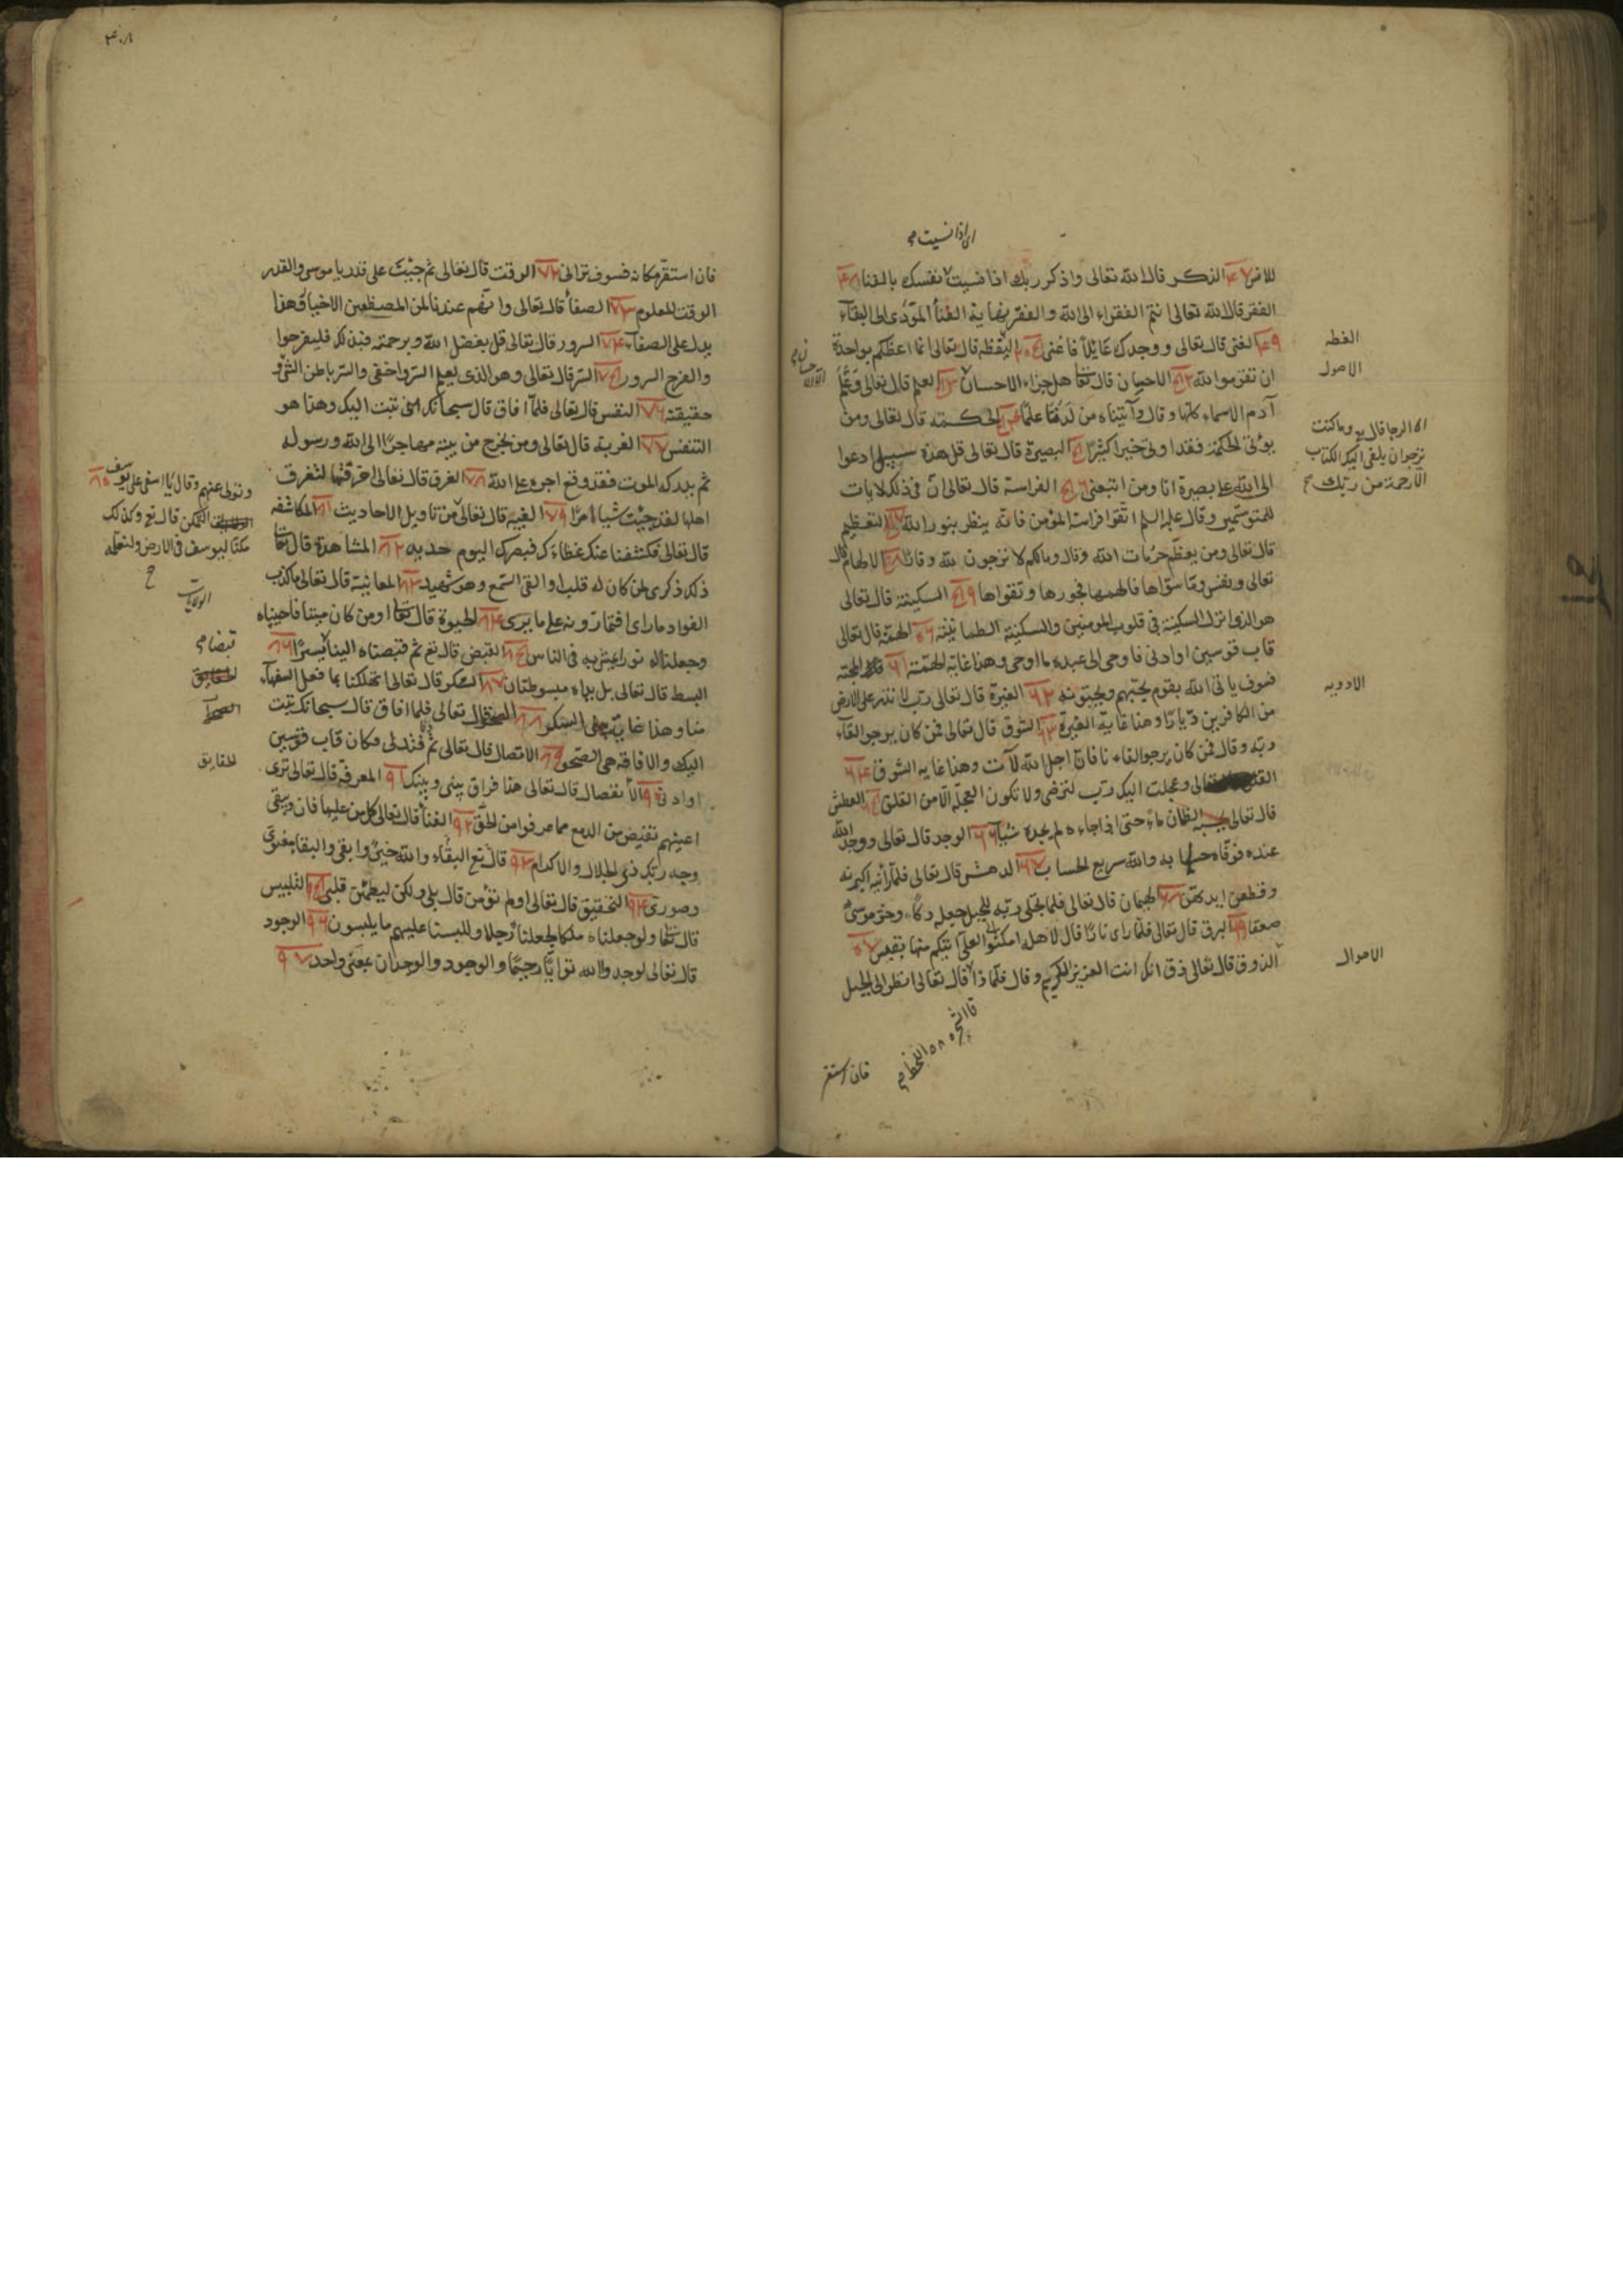 اى اذا نسيت
للانس ٤٧ الذكر قال الله تعالى واذكر ربك اذا نسيت نفسك بالفنا ٤٨
الفقر قال الله تعالى انتم الفقراء الى الله والفقر نهاية الفنأ المؤدى الى البقآء
٤٩ الغنى قال تعالى ووجدك عائلاً فاغنى ٥٠ اليقظه قال تعالى انما اعظكم بواحدة
ان تقوموا لله ٥٢ الاحسان قال تعا هل جزاء الاحسان ٥٣ العلم قال تعالى وعلّم
آدم الاسماء كلها وقال وآتيناه من لدنّا علمًا ٥٤ الحكمته قال تعالى ومن
يوتى الحكمة فقد اوتى خيرا كثيرًا ٥٥ البصيرة قال تعالى قل هذه سبيلى ادعوا
الى الله على بصيرة انا ومن اتبعنى ٥٦ الفراسة قال تعالى انّ فى ذلك لايات
للمتوسّمين وقال عليه السلم اتقوا فراسة المؤمن فانّه ينظر بنور الله ٥٧ التعظيم
قال تعالى ومن يعظّم حرُمات الله وقال ومالكم لا ترجون لله وقارًا ٥٨ الالهام قال
تعالى ونفس وما سوّاها فالهمها فجورها وتقواها ٥٩ السكينة قال تعالى
هو الذى انزل السكينة فى قلوب المومنين والسكينة الطمانينة ٦٠ الهمّة قال تعالى
قاب قوسين او ادنى فاوحى الى عبده ما اوحى وهذا غاية الهمّة ٦١ المحبّة
فسوف ياتى الله بقوم يحبّهم ويحبّونه ٦٢ الغيرة قال تعالى ربّ لا تذر على الارض
من الكافرين ديّارًا وهذا غاية الغيرة ٦٣ الشوق قال تعالى فمن كان يرجو القآء
ربه وقال فمن كان يرجو القاء نا فانّ اجل الله لآت وهذا غايه الشوق ٦٤
القلق تعالى وعجلت اليك ربّ لترضى ولا تكون العجلة الّا من القلق ٦٥ العطش
قال تعالى يحسبه الظمان ماءً حتى اذا جاءه لم يجده شيًا ٦٦ الوجد قال تعالى ووجد الله
عنده فوقّاه حسابه والله سريع الحساب ٦٧ الدهش قال تعالى فلمّا رأينه اكبرنه
وقطعن ايديهنّ ٦٨ الهيمان قال تعالى فلما تجلّى ربّه للجبل جعله دكًّا وخرّ موسى
صعقا ٦٩ البرق قال تعالى فلمّا راى نارًا قال لاهله امكثوا لعلّى آتيكم منها بقبس ٧٠
الذوق قال تعالى ذق انّك انت العزيز الكريم وقال فلمّا ذاقا قال تعالى انظر الى الجبل
فان استقر
اليقظه
الاصول
الرجا قال وما كنت
ترجوا ان يلقى اليك الكتاب
الّا رحمة من ربّك
الادويه
الاحوال
فان استقرّ مكانه فسوف ترانى ٧٢ الوقت قال تعالى ثم جئتَ على قدر يا موسى والقدر
الوقت المعلوم ٧٣ الصفأ قال تعالى وانّهم عندنا لمن المصطفين الاخيار وهذا
يدل على الصفآء ٧٤ السرور قال تعالى قل بفضل الله وبرحمته فبذلك فليفرحوا
والفرح السرور ٧٥ السّر قال تعالى وهو الذى يعلم السرّ واخفى والسّر باطن الشئ و
حقيقته ٧٦ النفس قال تعالى فلمّا افاق قال سبحانك انى تبت اليك وهذا هو
التنفس ٧٧ الغربة قال تعالى ومن يخرج من بيته مهاجرًا الى الله ورسوله
ثم يدركه الموت فقد وقع اجره على الله ٧٨ الغرق قال تعالى اخرقتها لتغرق
اهلها لقد جئت شيا امرًا ٧٩ الغيبه قال تعالى من تاويل الاحاديث ٨١ المكاشفه
قال تعالى فكشفنا عنك غطاءك فبصرك اليوم حديد ٨٢ المشاهدة قال تعا
ذلك ذكرى لمن كان له قلب او القى السّمع وهو شهيد ٨٣ المعاينة قال تعالى ما كذب
الفواد ما راى افتمارونه على ما يرى ٨٤ الحيوة قال تعا او من كان ميتا فاحييناه
وجعلنا له نورا يمشى به فى الناس ٨٥ القبض قال تع ثم قبضناه الينا يسيرًا ٨٦
البسط قال تعالى بل يداه مبسوطتان ٨٧ السكر قال تعالى اتهلكنا بما فعل السفهآء
منا وهذا غاية السكر ٨٨ الصحو قال تعالى فلما افاق قال سبحانك تبت
اليك والافاقه هى الصّحو ٨٩ الاتصال قال تعالى ثم دنا فتدلى فكان قاب قوسين
او ادنى ٩٠ الأنفصال قال تعالى هذا فراق بينى وبينك ٩١ المعرفة قال تعالى ترى
اعينهم تفيض من الدمع مما عرفوا من الحقّ ٩٢ الفنأ قال تعالى كل من عليها فان ويبقى
وجه ربّك ذى الجلال والاكرام ٩٣ قال تع البقآء والله خيرٌ وابقى والبقا معنوى
وصورى ٩٤ التحقيق قال تعالى اولم تؤمن قال بلى ولكن ليطمئن قلبى ٩٥ التلبيس
قال تعا ولو جعلناه ملكا لجعلناه رجلا وللبسنا عليهم ما يلبسون ٩٦ الوجود
قال تعالى لوجدوا الله توابًا رحيمًا والوجود والوجدان بمعنى واحد ٩٧
وتولى عنهم وقال يا اسفى على يوسف ٨٠
التمكن قال تع وكذلك
مكنّا ليوسف فى الارض ولنعلّمه
الولايات
قبضا
الحقايق